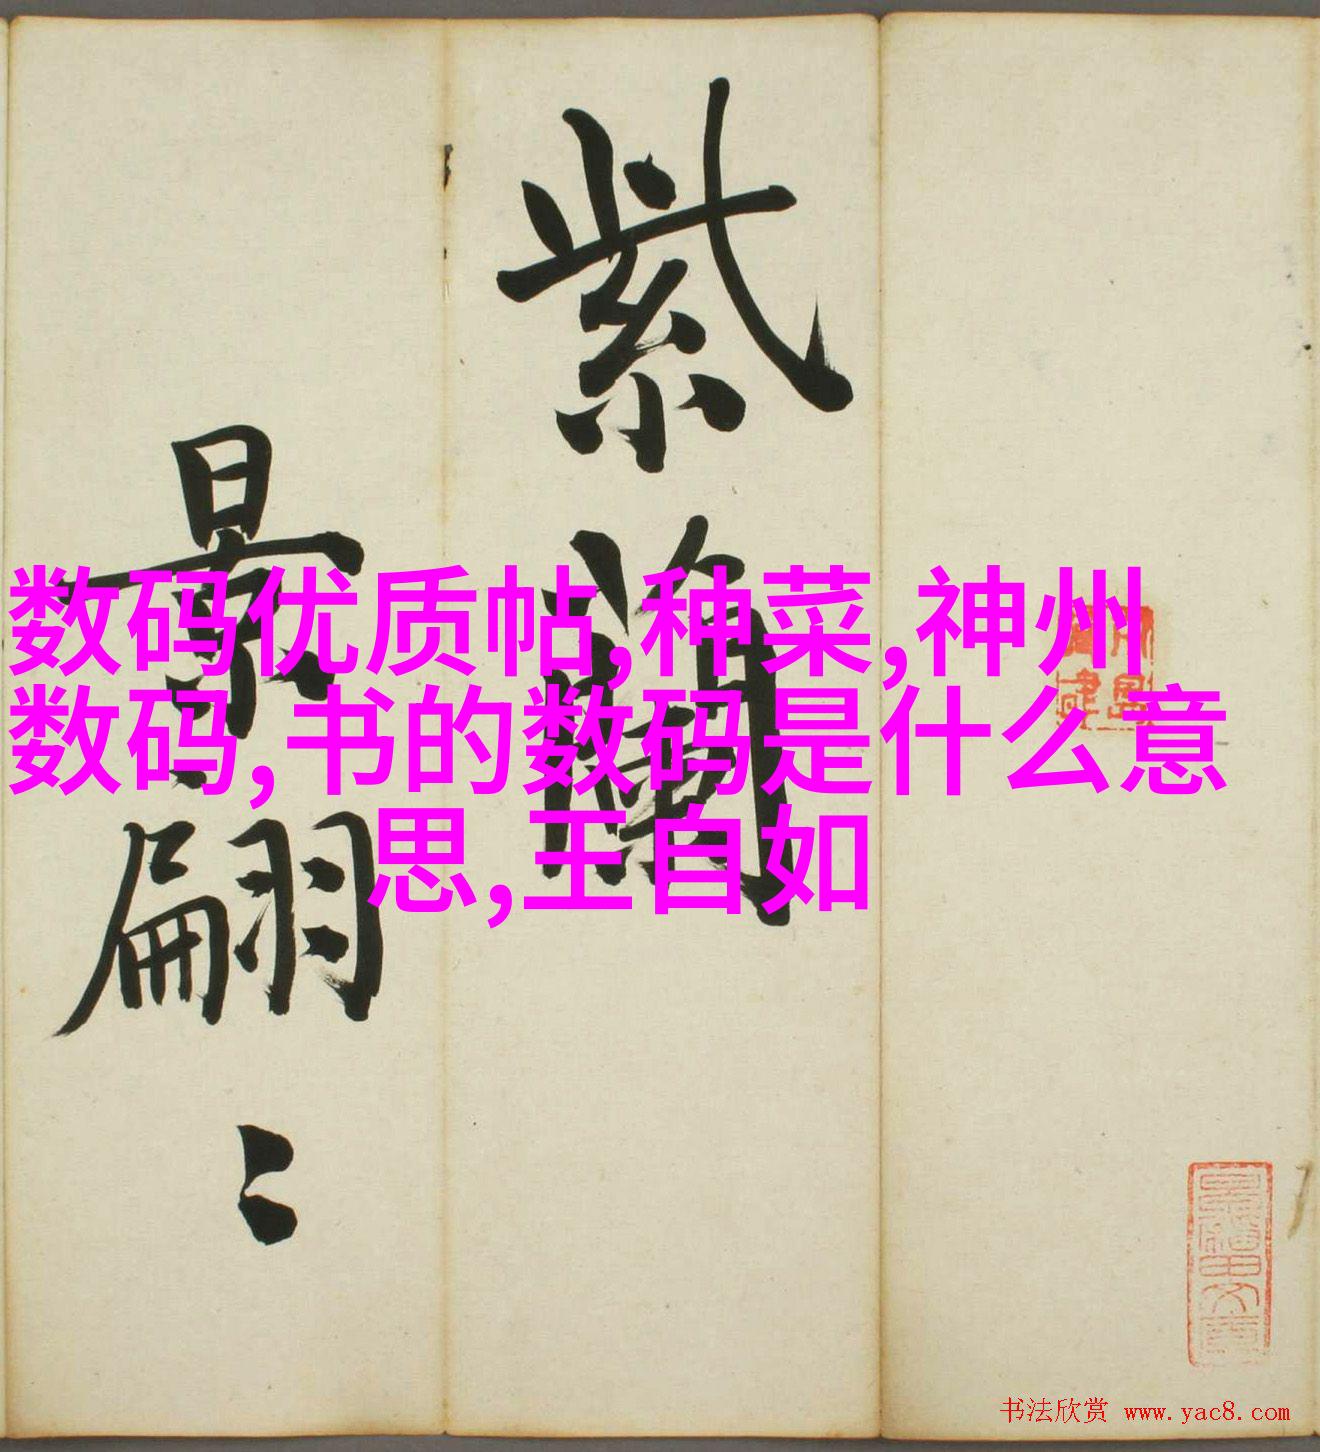 紫蘭
最翩〻
数码优质帖,种菜,神州
数码,书的数码是什么意
思,王自如
书法欣赏 www.yac8.com